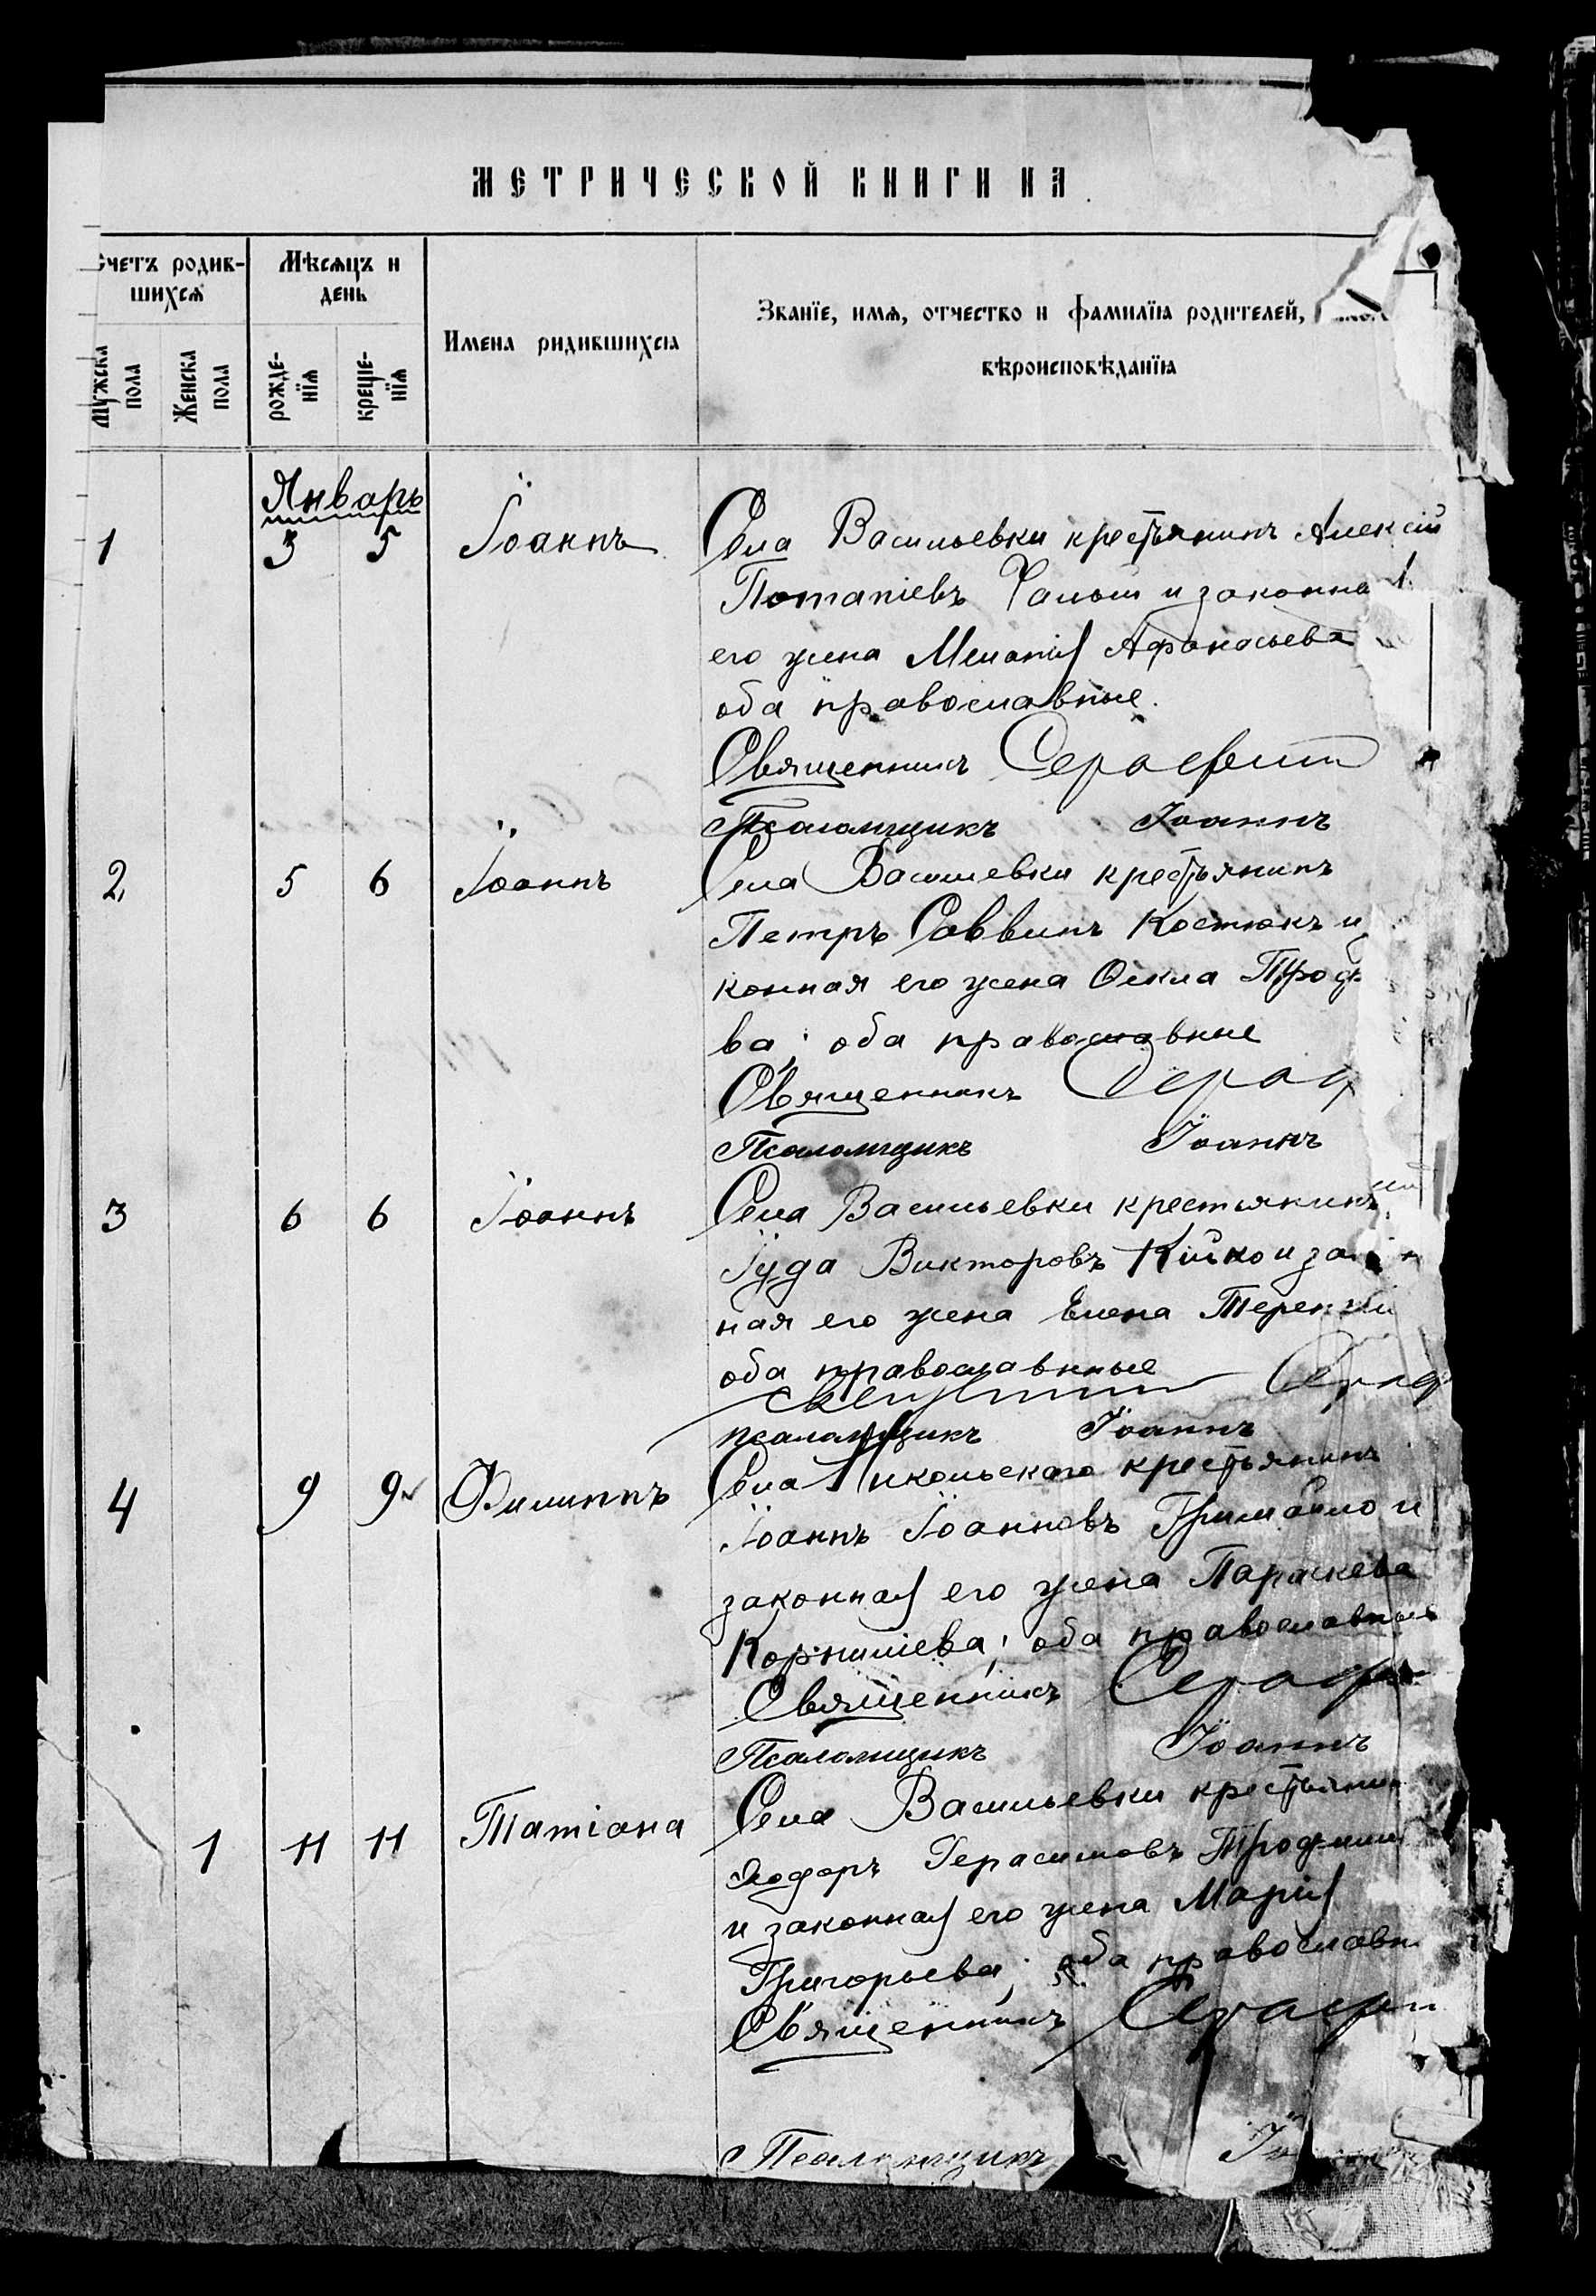 МЕТРИЧЕСКОЙ КНИГИ НА
Счетъ родив-
шихся
Мѣсяцъ и
день
Имена ридившихсіа
Званїе, имя, отчество и фамилїіа родителей,
вѣроисповѣданїіа
Мужска
пола
Женска
пола
рожде-
нїя
креще-
нїя
Январь
1 3 5 Іоаннъ Села Васильевки крестьянинъ Алексій
Потапіевъ Чалый и законна
его жена Меланія Афанасьева
оба православные.
Священникъ Серафим
Псаломщикъ Іоаннъ
2 5 6 Іоаннъ Села Василевки крестьянинъ
Петръ Саввинъ Костюкъ и
конная его жена Ѳекла Троф
ва; оба православные
Священникъ Сераф
Псаломщикъ Іоаннъ
3 6 6 Іоаннъ Села Васильевки крестьянинъ
Іуда Викторовъ Кійко и за
ная его жена Елена Терен
оба православные
Сераф
псаломщикъ Іоаннъ
4 9 9 Филиппъ Села Никольскаго крестьянинъ
Іоаннъ Іоанновъ и
законная его жена Параскева
Корниліева; оба православные
Священникъ Сераф
Псаломщикъ Іоаннъ
1 11 11 Татіана Села Васильевки крестьянин
Ѳеодоръ Герасимовъ
и законная его жена Марія
Григорьева; оба православн
Священникъ Серафи
Псаломщикъ